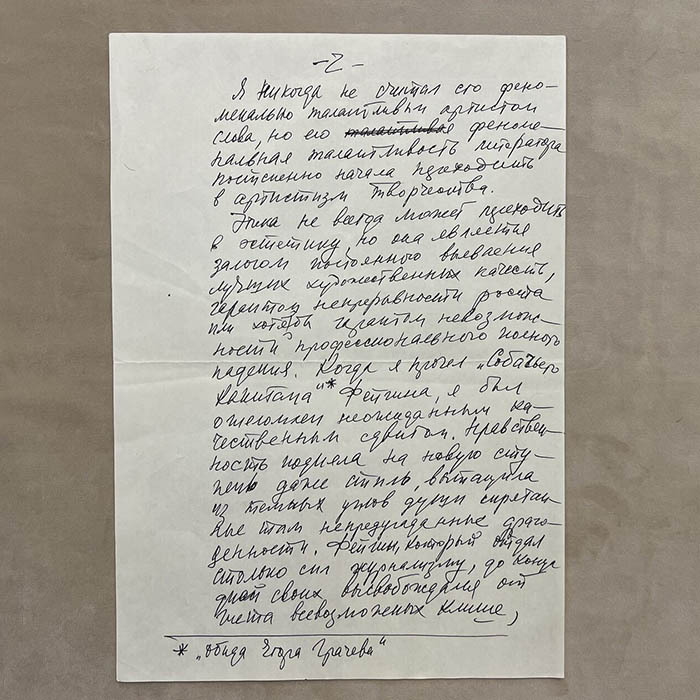 -2-
Я никогда не считал его фено-
менально талантливым артистом
слова, но его талантливая феноме-
нальная талантливость литератора
постепенно начала переходить
в артистизм творчества.
Этика не всегда может переходить
в эстетику, но она является
залогом постоянного выявления
лучших художественных качеств,
гарантом непрерывности роста
или хотя бы гарантом невозмож-
ности профессионального полного
падения. Когда я прочел „Собачьего
Капитана"* Фейгина, я был
ошеломлен неожиданным ка-
чественным сдвигом. Нравствен-
ность подняла на новую сту-
пень даже стиль, вытащила
из темных углов души спрятан-
ные там непредугаданные драго-
ценности. Фейгин, который отдал
столько сил журнализму, до конца
дней своих высвобождался от
гнета всевозможных клише,
* „Обида Егора Грачева"